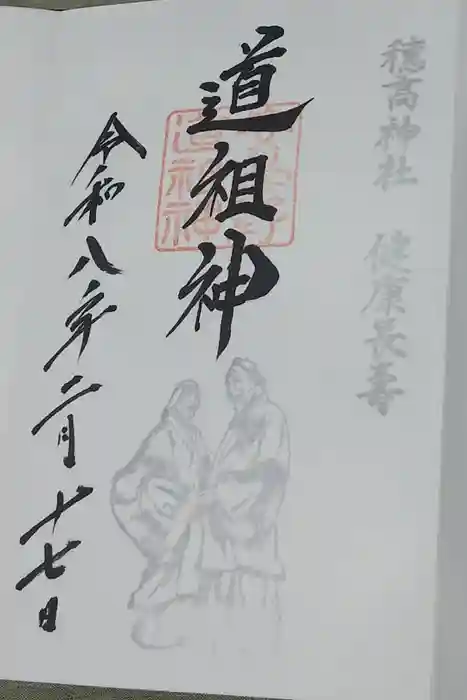 穂高神社 健康長寿
道祖神
令和八年二月十七日